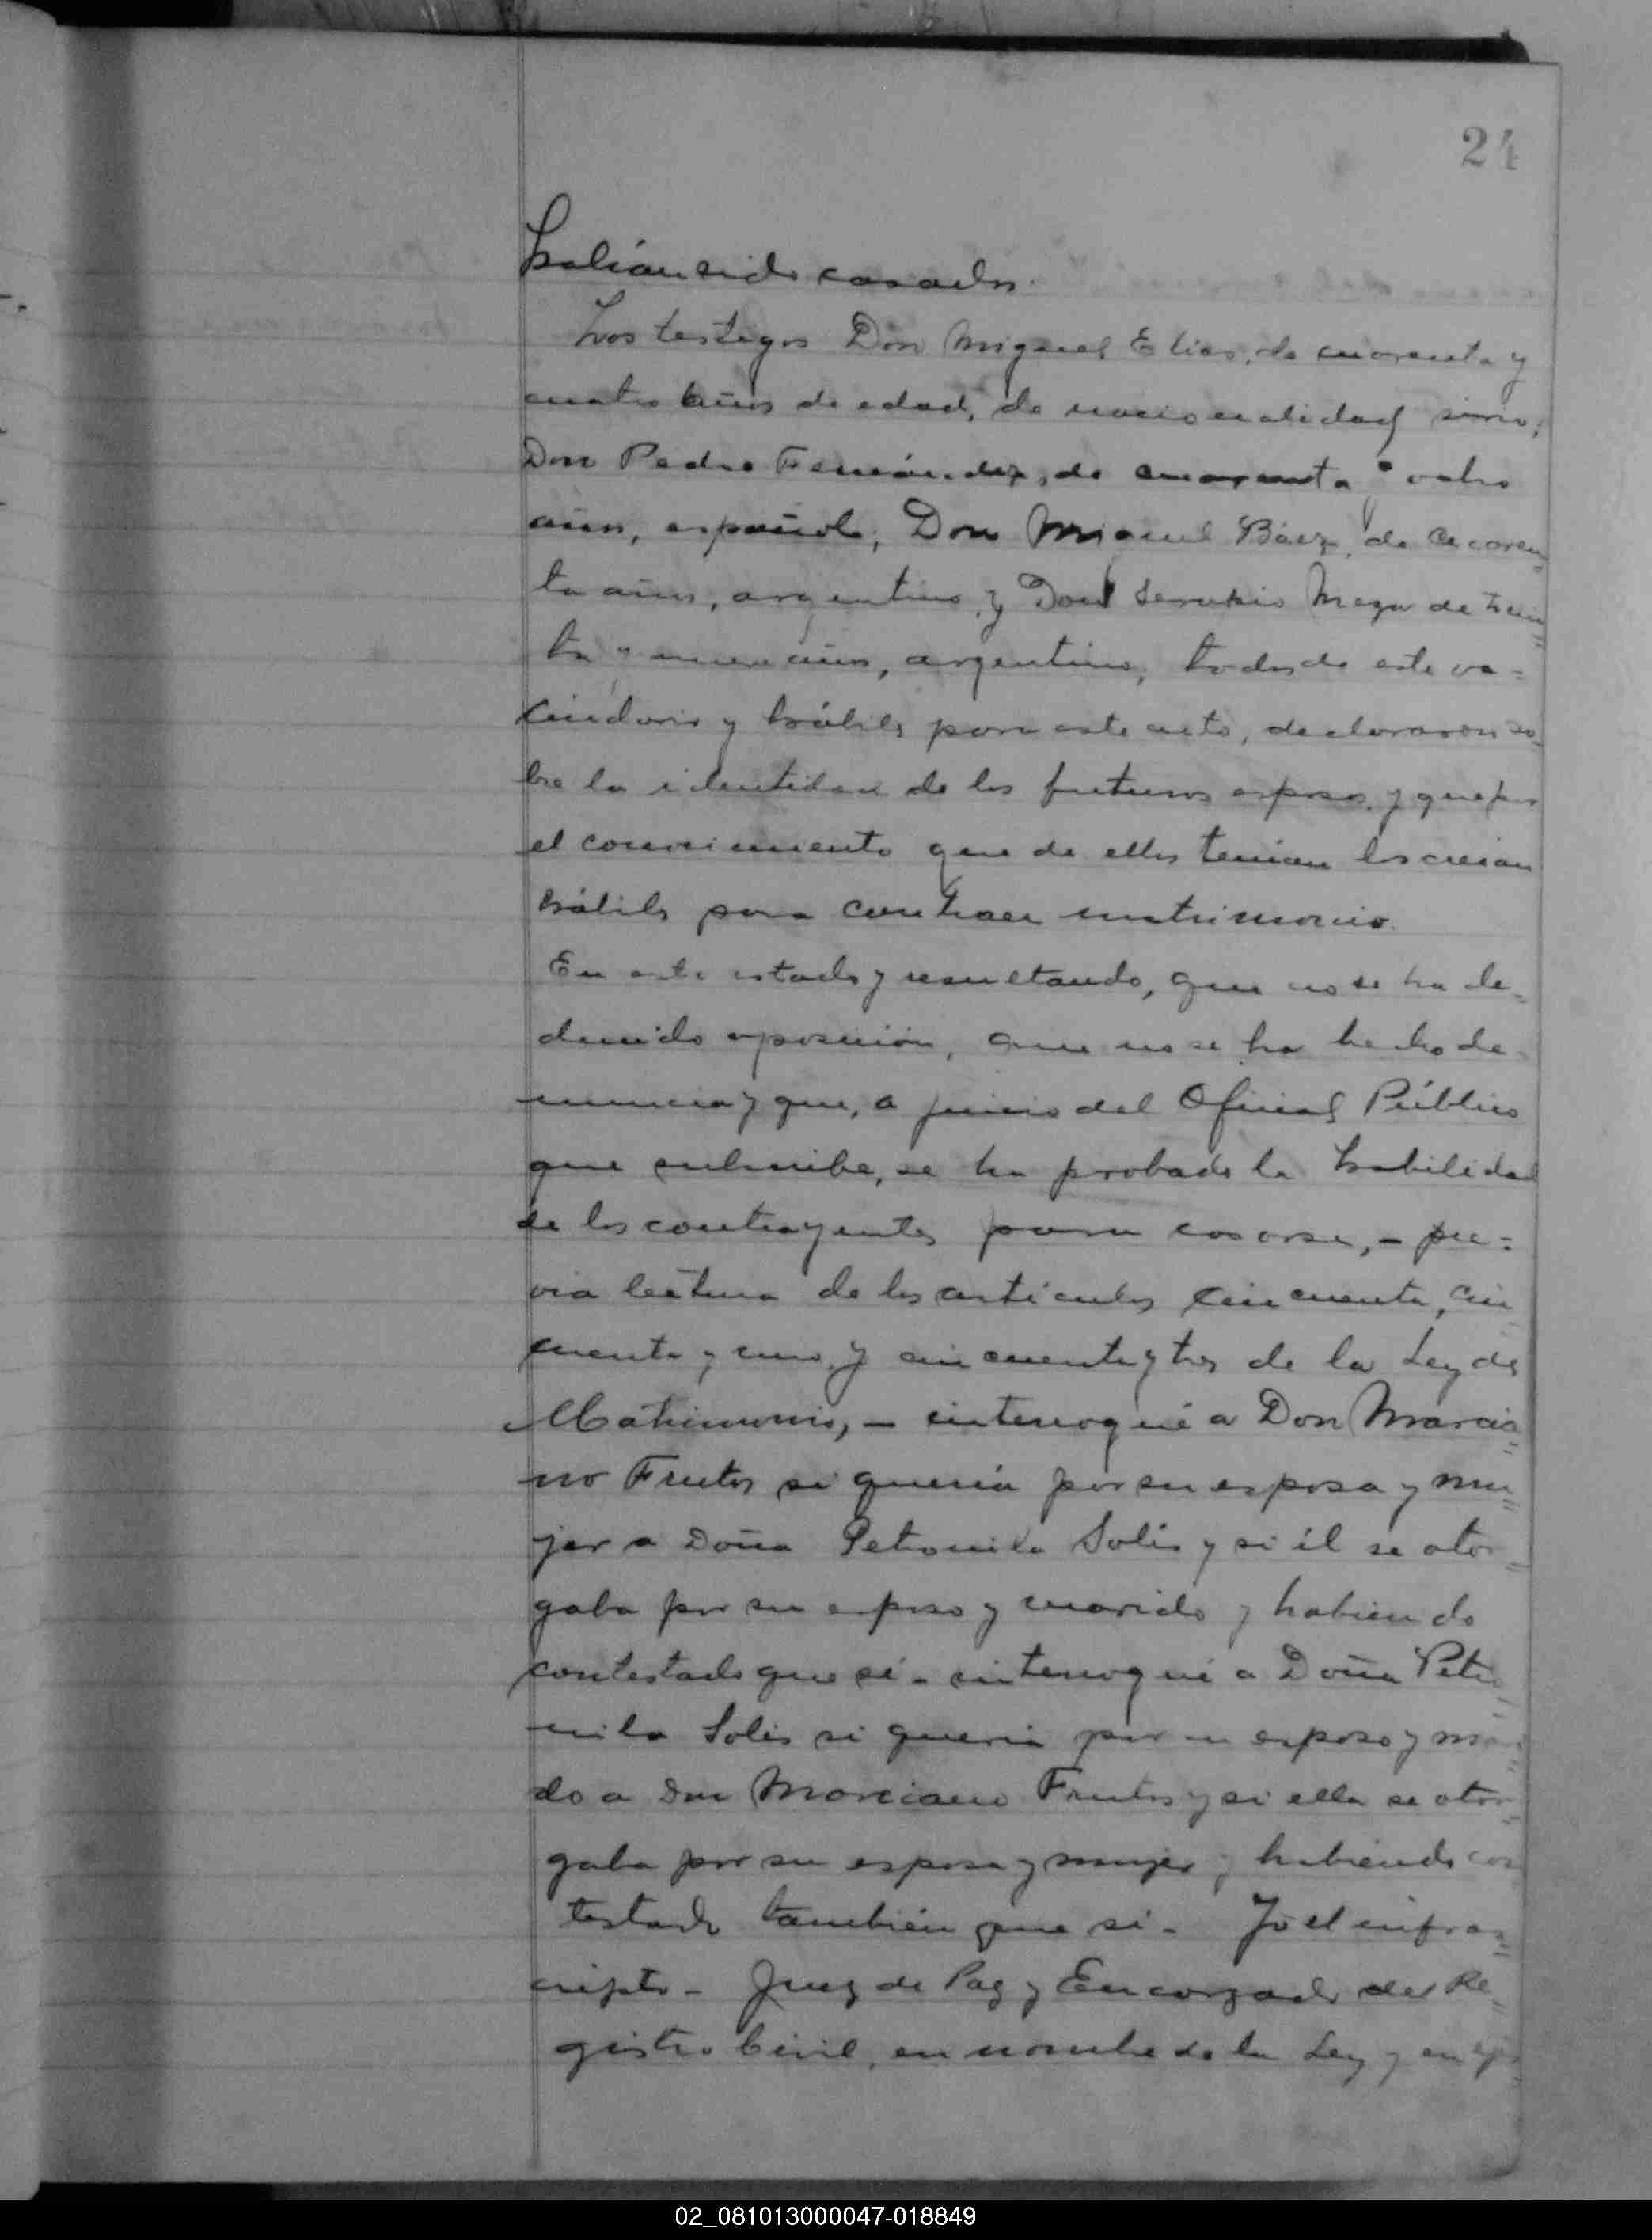 24
habían sido casados.
Los testigos Don Miguel Elias, de cuarenta y
cuatro años de edad, de nacionalidad sirio;
Don Pedro Fernández, de cuarenta y ocho
años, español; Don Miguel Báez, de cuaren=
ta años, argentino y Don Serapio Meza de trein=
ta y nueve años, argentino, todos de este ve=
cindario y hábiles para este acto, declararon so=
bre la identidad de los futuros esposos y que por
el conocimiento que de ellos tenían los creían
hábiles para contraer matrimonio.
En este estado y resultando, que no se ha de=
ducido oposición, que no se ha hecho de=
nuncia y que, a juicio del Oficial Público
que subscribe, se ha probado la habilidad
de los contrayentes para casarse, - pre=
via lectura de los artículos cincuenta, cin=
cuenta y uno y cincuenta y tres de la Ley de
Matrimonio, - interrogué a Don Marcia=
no Frutos si quería por su esposa y mu=
jer a Doña Petronila Solis y si él se otor=
gaba por su esposo y marido y habiendo
contestado que sí - interrogué a Doña Petro=
nila Solis si quería por su esposo y mari=
do a Don Marciano Frutos y si ella se otor=
gaba por su esposa y mujer y habiendo con=
testado también que sí - Yo el infras=
cripto - Juez de Paz y Encargado del Re=
gistro Civil, en nombre de la Ley y en
02_081013000047-018849